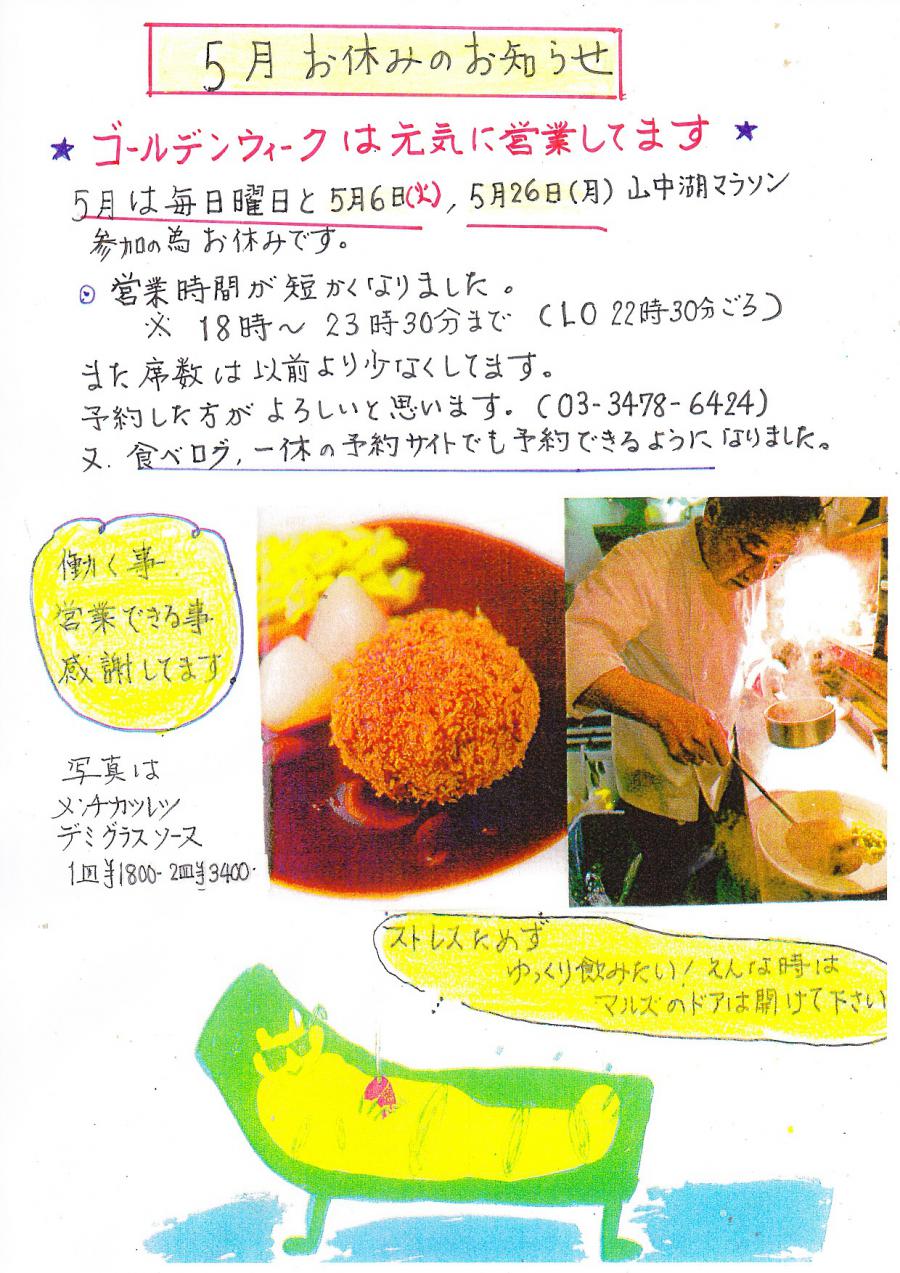 5月 お休みのお知らせ
★ ゴールデンウィークは元気に営業してます ★
5月は毎日曜日と5月6日(火), 5月26日(月) 山中湖マラソン
参加の為お休みです。
⦿ 営業時間が短かくなりました。
※ 18時〜23時30分まで (LO 22時30分ごろ)
また席数は以前より少なくしてます。
予約した方がよろしいと思います。(03-3478-6424)
又、食べログ, 一休の予約サイトでも予約できるようになりました。
働く事
営業できる事
感謝してます
写真は
メンチカツレツ
デミグラスソース
1皿¥1800- 2皿¥3400-
ストレスためず
ゆっくり飲みたい! そんな時は
マルズのドアは開けて下さい